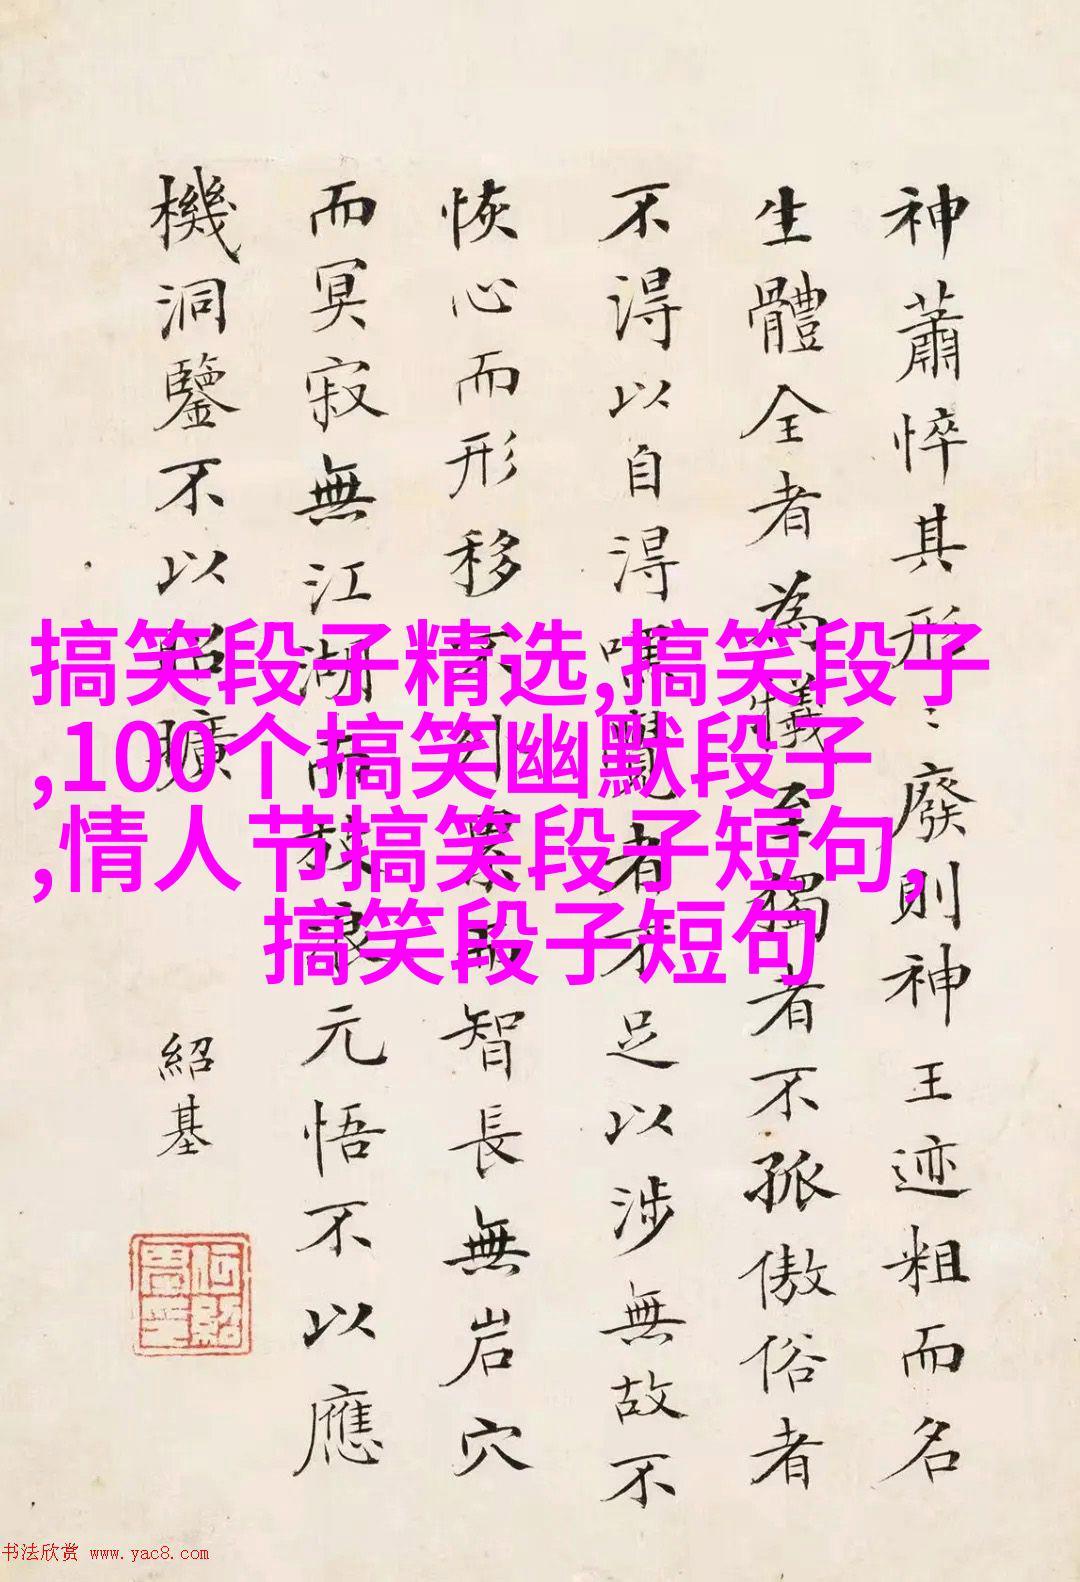 神蕭悴其形〻廢則神王迹粗而名
生體全者為犧至獨者不孤傲俗者
不得以自得者不足以涉無故不
恢心而形移智長無岩穴
而冥寂無江湖而放浪元悟不以應
機洞鑒不以昭曠
紹基
搞笑段子精选,搞笑段子
,100个搞笑幽默段子
,情人节搞笑段子短句,
搞笑段子短句
书法欣赏 www.yac8.com